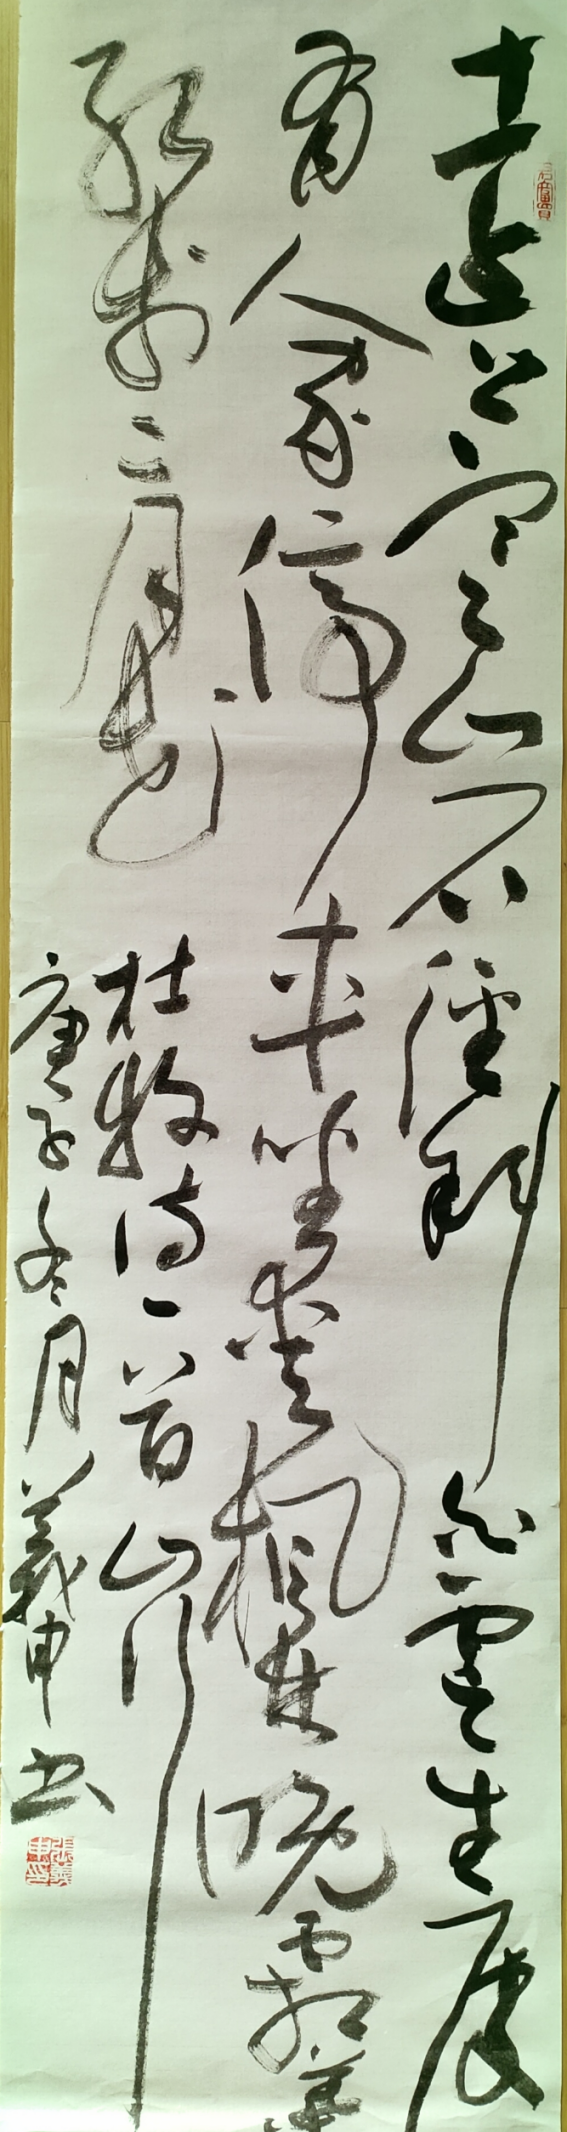 遠上寒山石徑斜白雲生處
有人家停車坐愛楓林晚霜葉
紅於二月花
杜牧诗一首山行
庚子冬月義申书